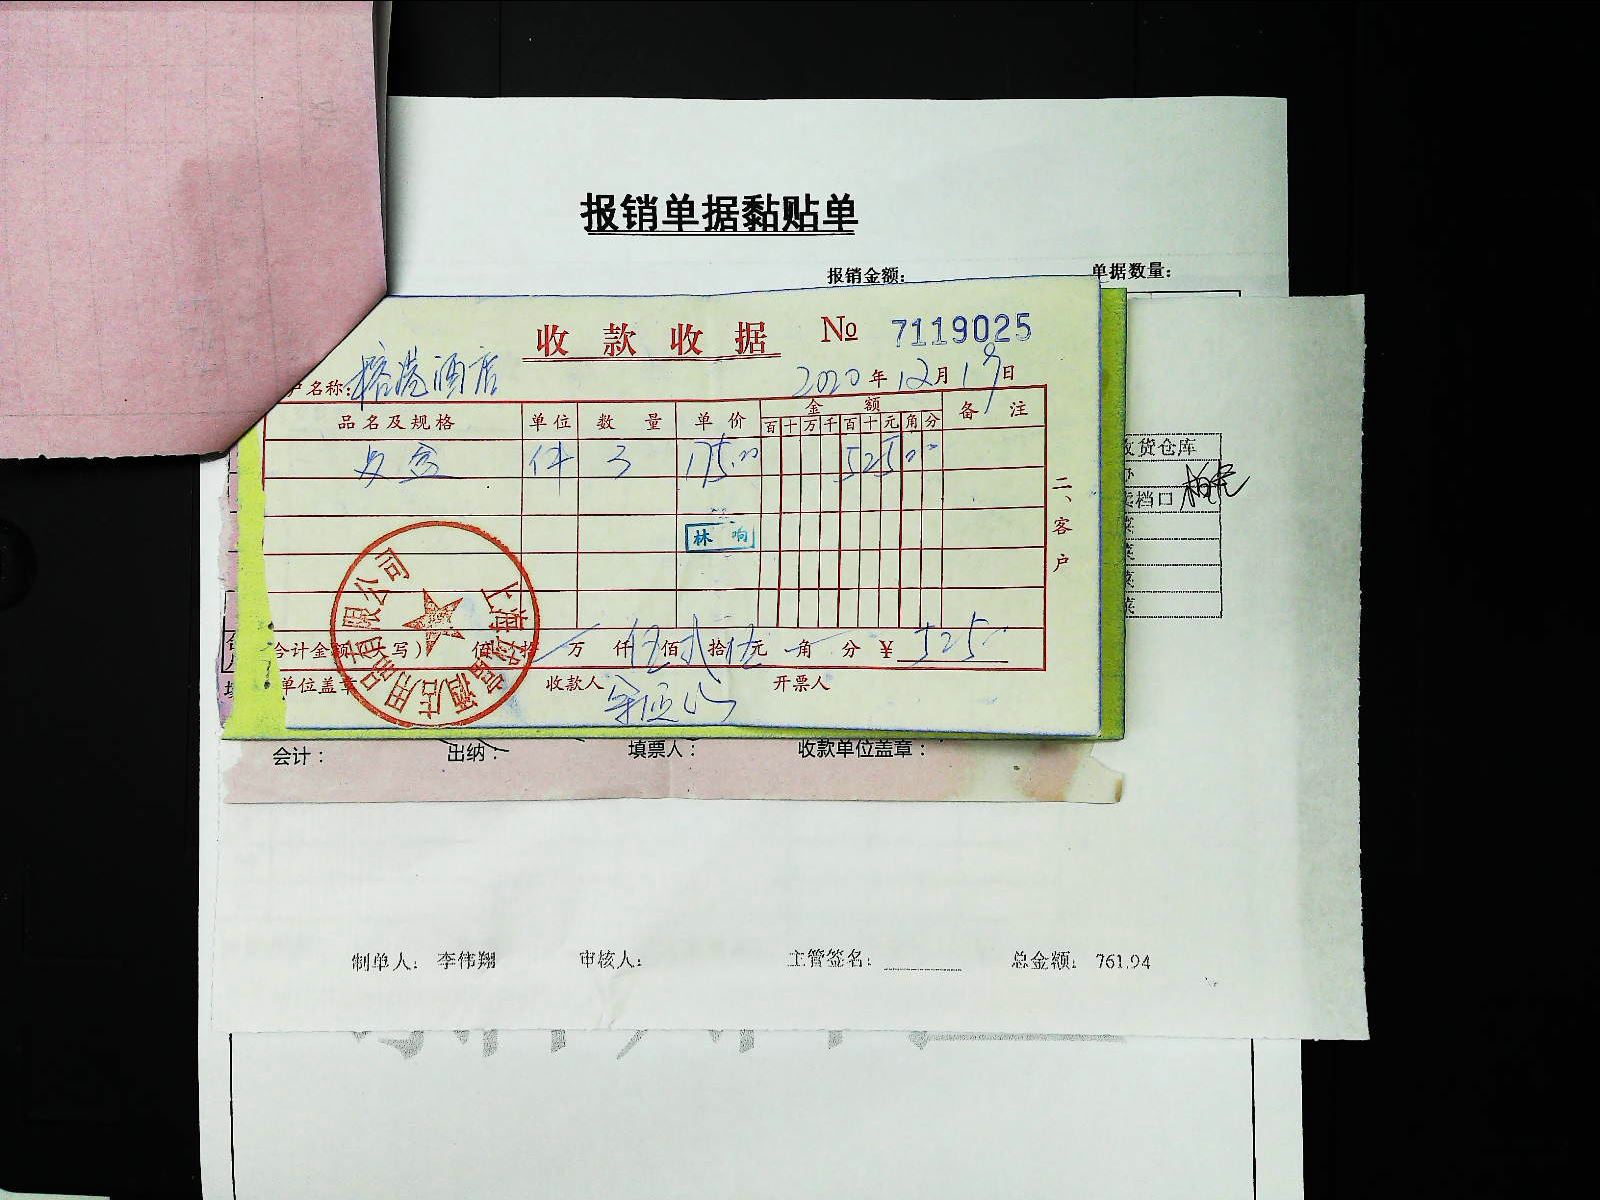 报销单据黏贴单
报销金额： 单据数量：
收款收据 № 7119025
户名称： 榕港酒店 2020年12月19日
品名及规格 单位 数量 单价 金额 备注
百十万千百十元角分
件 3 175.00 525.00
林响
二、客户
合计金额（大写） 佰 拾 万 仟 伍佰贰拾伍元 角 分 ￥ 525
单位盖章 收款人 开票人
酒店用品有限公司
上海
收货仓库
档口
会计： 出纳： 填票人： 收款单位盖章：
制单人： 李伟翔 审核人： 主管签名： 总金额： 761.94